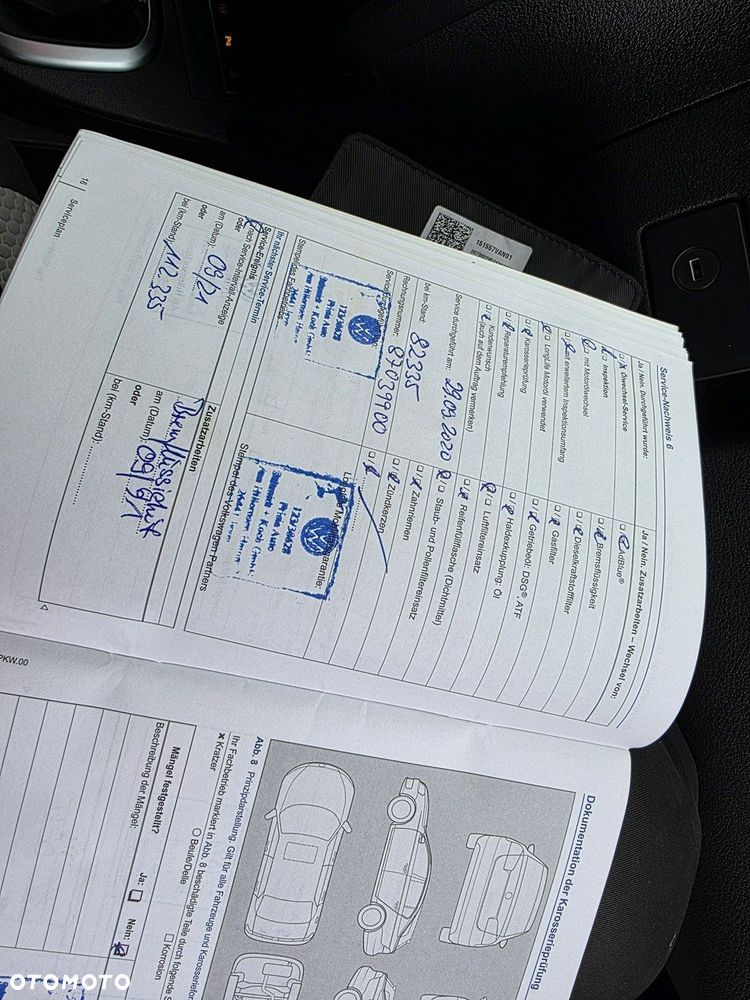 Service-Nachweis 6
Ja / Nein. Durchgeführt wurde:
Ölwechsel-Service
Inspektion
mit Motorölwechsel
mit erweitertem Inspektionsumfang
LongLife Motoröl verwendet
Karosserieprüfung
Reparaturempfehlung
Kundenwunsch
(auch auf dem Auftrag vermerken)
Service durchgeführt am: 29.09.2020
bei km-Stand: 82335
Rechnungsnummer: 87039900
Stempel des Fachbetriebs
Ihr nächster Service-Termin
Service-Ereignis
nach Service-Intervall-Anzeige
oder
am (Datum): 09/21
oder
bei (km-Stand): 112.335
Ja / Nein. Zusatzarbeiten – Wechsel von:
AdBlue®
Bremsflüssigkeit
Dieselkraftstofffilter
Gasfilter
Getriebeöl: DSG®, ATF
Haldexkupplung: Öl
Luftfiltereinsatz
Reifenfüllflasche (Dichtmittel)
Staub- und Pollenfiltereinsatz
Zahnriemen
Zündkerzen
Stempel des Volkswagen Partners
Zusatzarbeiten
Bremsflüssigkeit
am (Datum): 09/21
oder
bei (km-Stand):
16
Serviceplan
Dokumentation der Karosserieprüfung
Abb. 8 Prinzipdarstellung. Gilt für alle Fahrzeuge und
Ihr Fachbetrieb markiert in Abb. 8 beschädigte Teile durch folgende
× Kratzer
Beule/Delle
Korrosion
Mängel festgestellt?
Ja:
Nein:
Beschreibung der Mängel:
PKW.00
151557VAN01
OTOMOTO